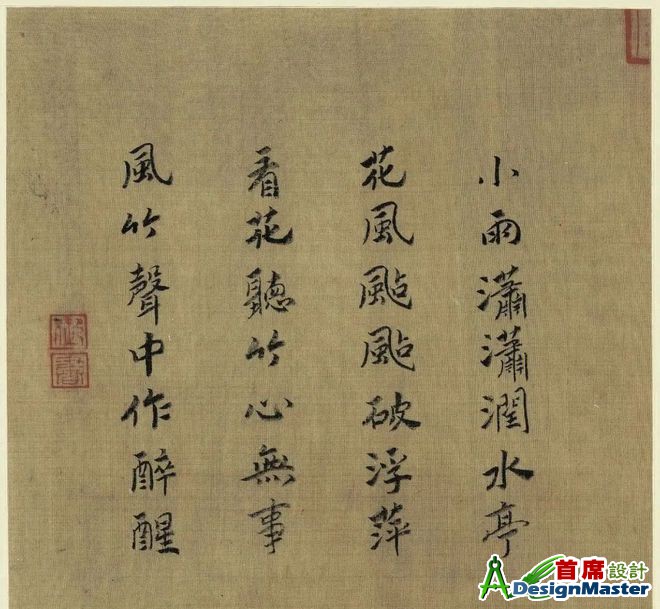 小雨瀟瀟潤水亭
花風颭颭破浮萍
看花聽竹心無事
風竹聲中作醉醒
御書
首席設計
ADesignMaster